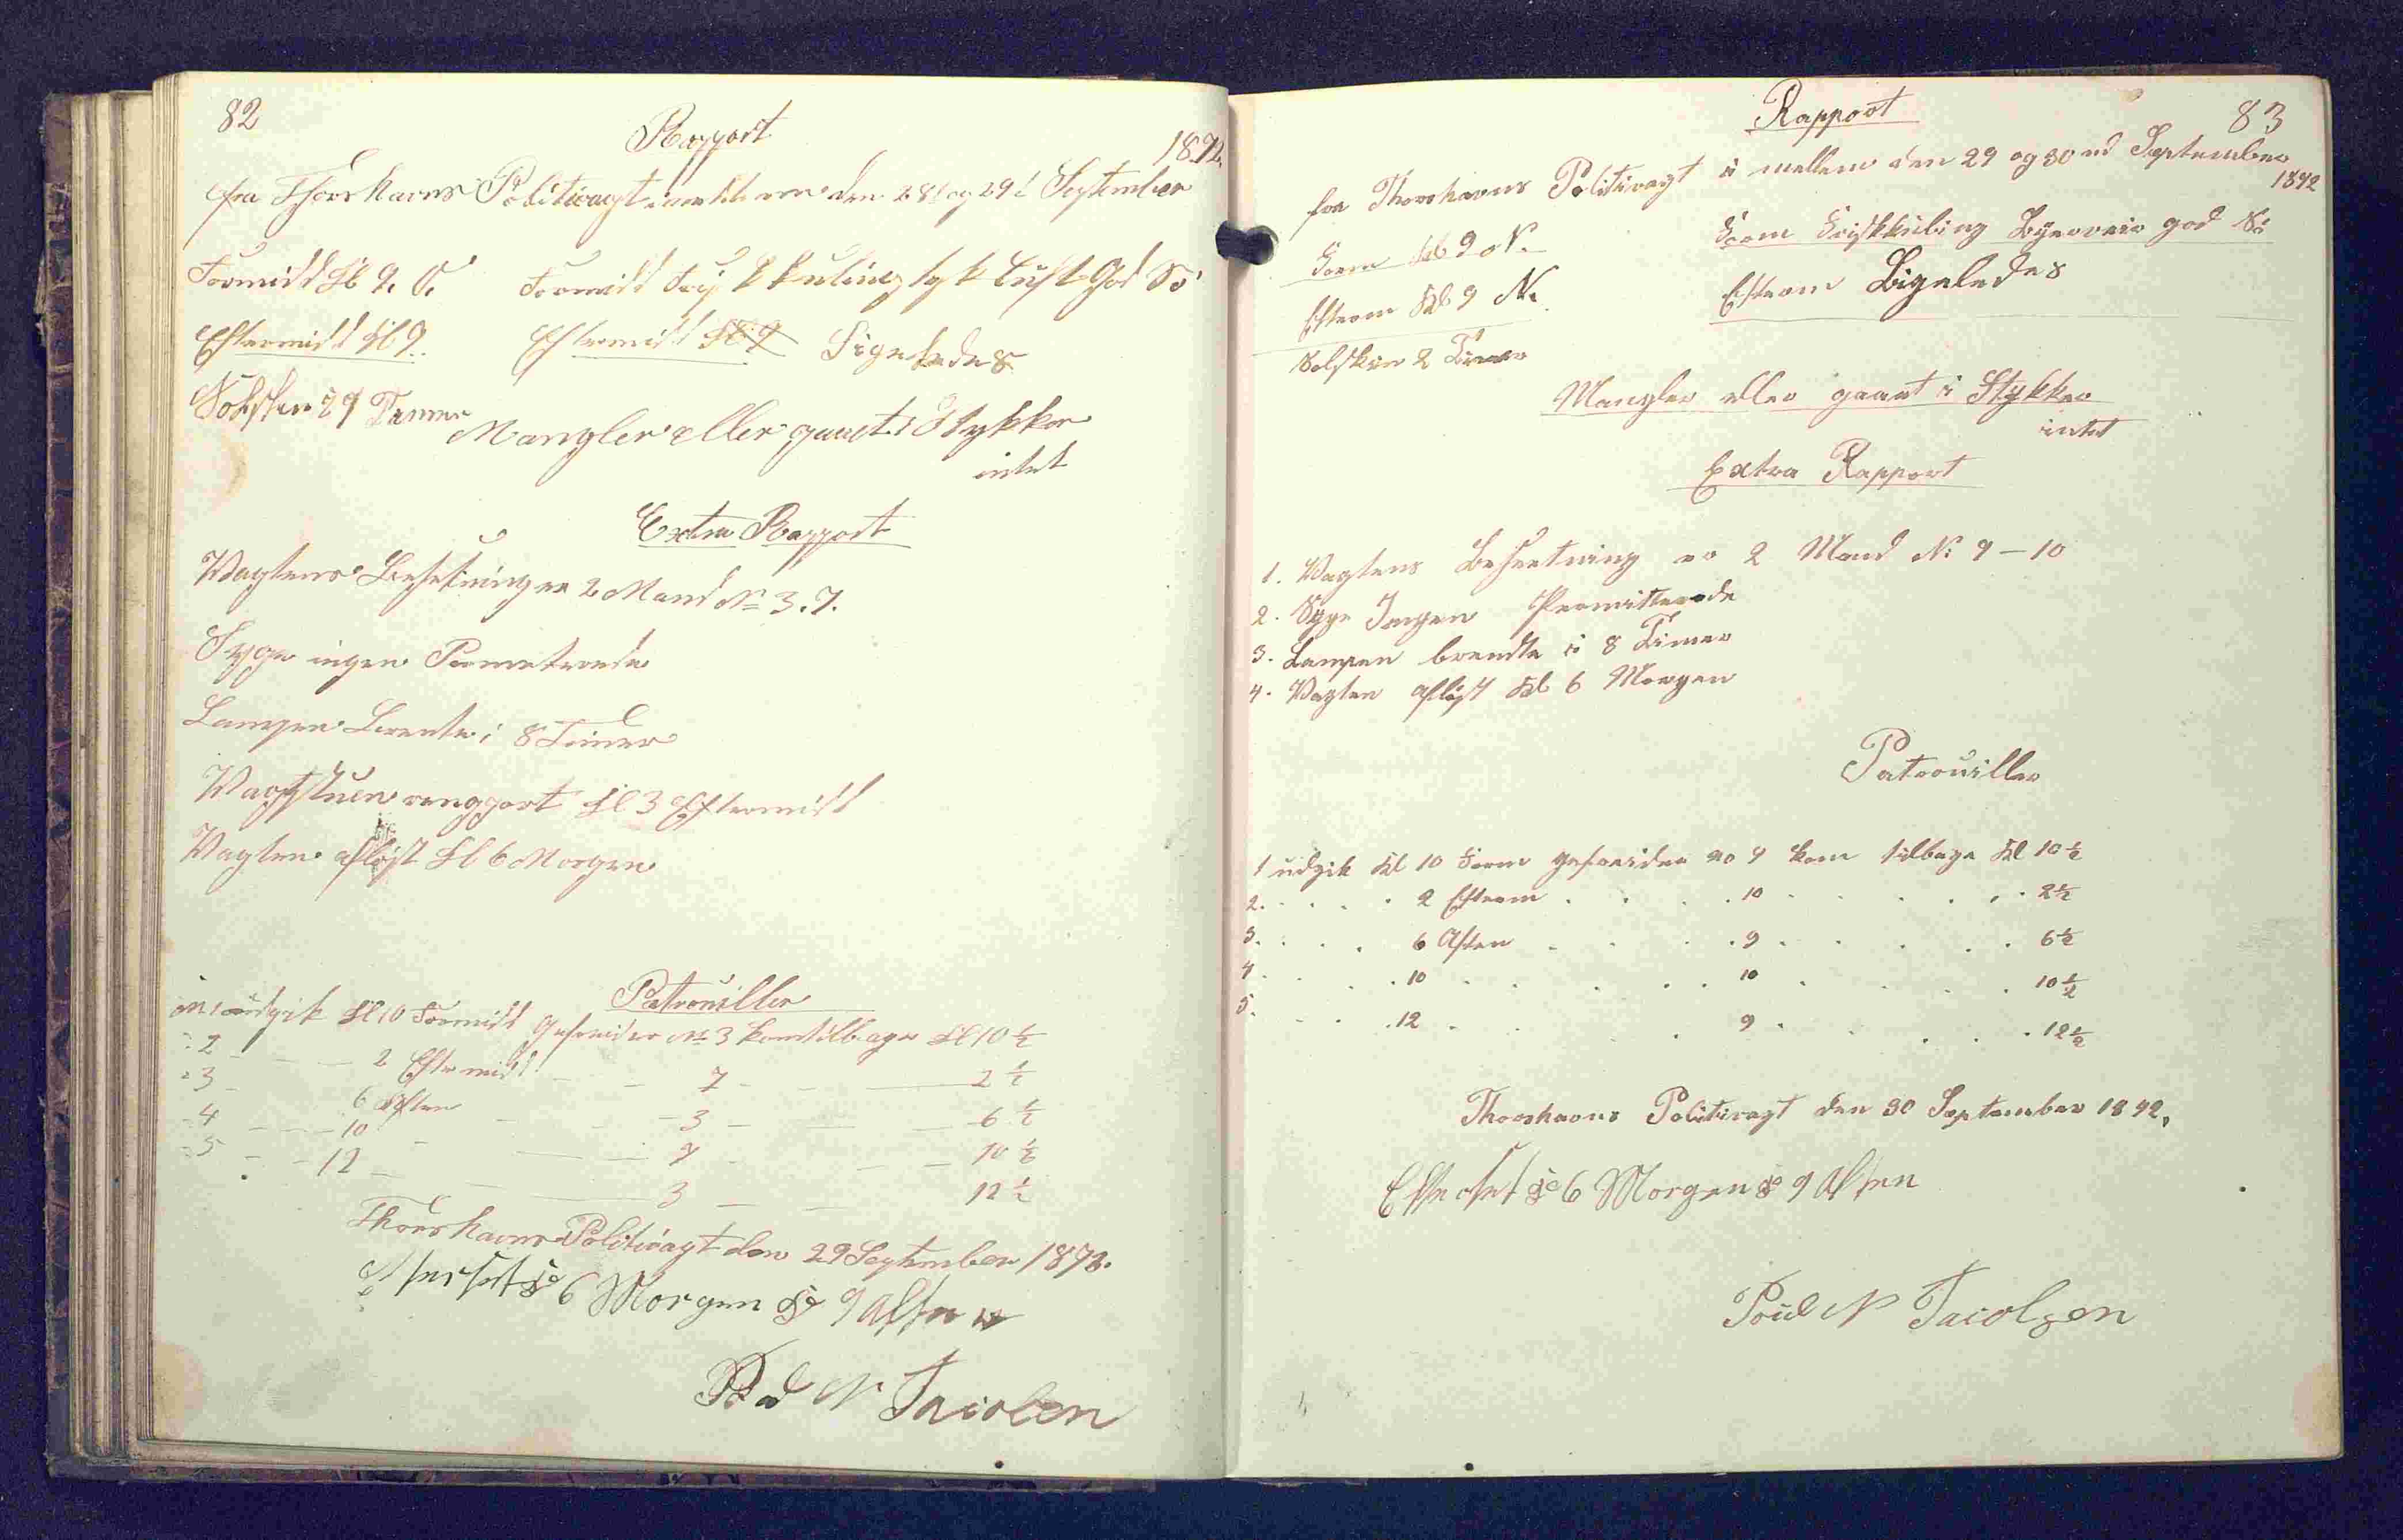 82
Rapport
1872.
fra Thorshavns Politivagt imellem den 28 og 29 September
Formidd Kl 9. O. Formidd Frisk kuling tyk Luft God Sö
Eftermidd Kl 9. Eftermidd Kl 9 Ligeledes
Timer
Mangler eller gaaet i Stykker
intet
Extra Rapport
Vagtens Besetning er 2 Mand No 3. 7.
Syge ingen Permeterede
Lampen Brente i 8 Timer
Vagtstuen rengjort Kl 3 Eftermidd
Vagten aflöst Kl 6 Morgen
Patrouiller
No 1 udgik Kl 10 Formidd Gefreider No 3 kom tilbage Kl 10 ½
- 2 - - 2 Eftermidd - - 7 - - 2 ½
- 3 - 6 Aften - - 3 - - 6 ½
- 4 - - 10 - - 7 - - 10 ½
- 5 - - 12 - - 3 - - 12 ½
Thorshavns Politivagt den 29 September 1872.
Efterset Kl 6 Morgen Kl 9 Aften
Poul N Jacobsen
Rapport
83
fra Thorshavns Politivagt i mellem den 29 og 30 September
1872
Form Kl 9 N. Form Friskkuling Byerveir god Sö
Efterm Kl 9 N. Efterm Ligeledes
Solskin 2 Timer
Mangler eller gaaet i Stykker
intet
Extra Rapport
1. Vagtens Besætning er 2 Mand No 9 - 10
2. Syge Ingen Permitterede
3. Lampen brendte i 8 Timer
4. Vagten aflöst Kl 6 Morgen
Patrouiller
1 udgik Kl 10 Form gefreider No 9 kom tilbage Kl 10 ½
2. . . . . 2 Efterm . . . 10 . . . . . 2 ½
3. . . . 6 Aften . . . 9 . . . . . 6 ½
4 . . . 10 . . . . 10 . . . . 10 ½
5. . . . 12 . . . 9 . . . . 12 ½
Thorshavns Politivagt den 30 September 1872.
Efterset Kl 6 Morgen Kl 9 Aften
Poul N Jacobsen